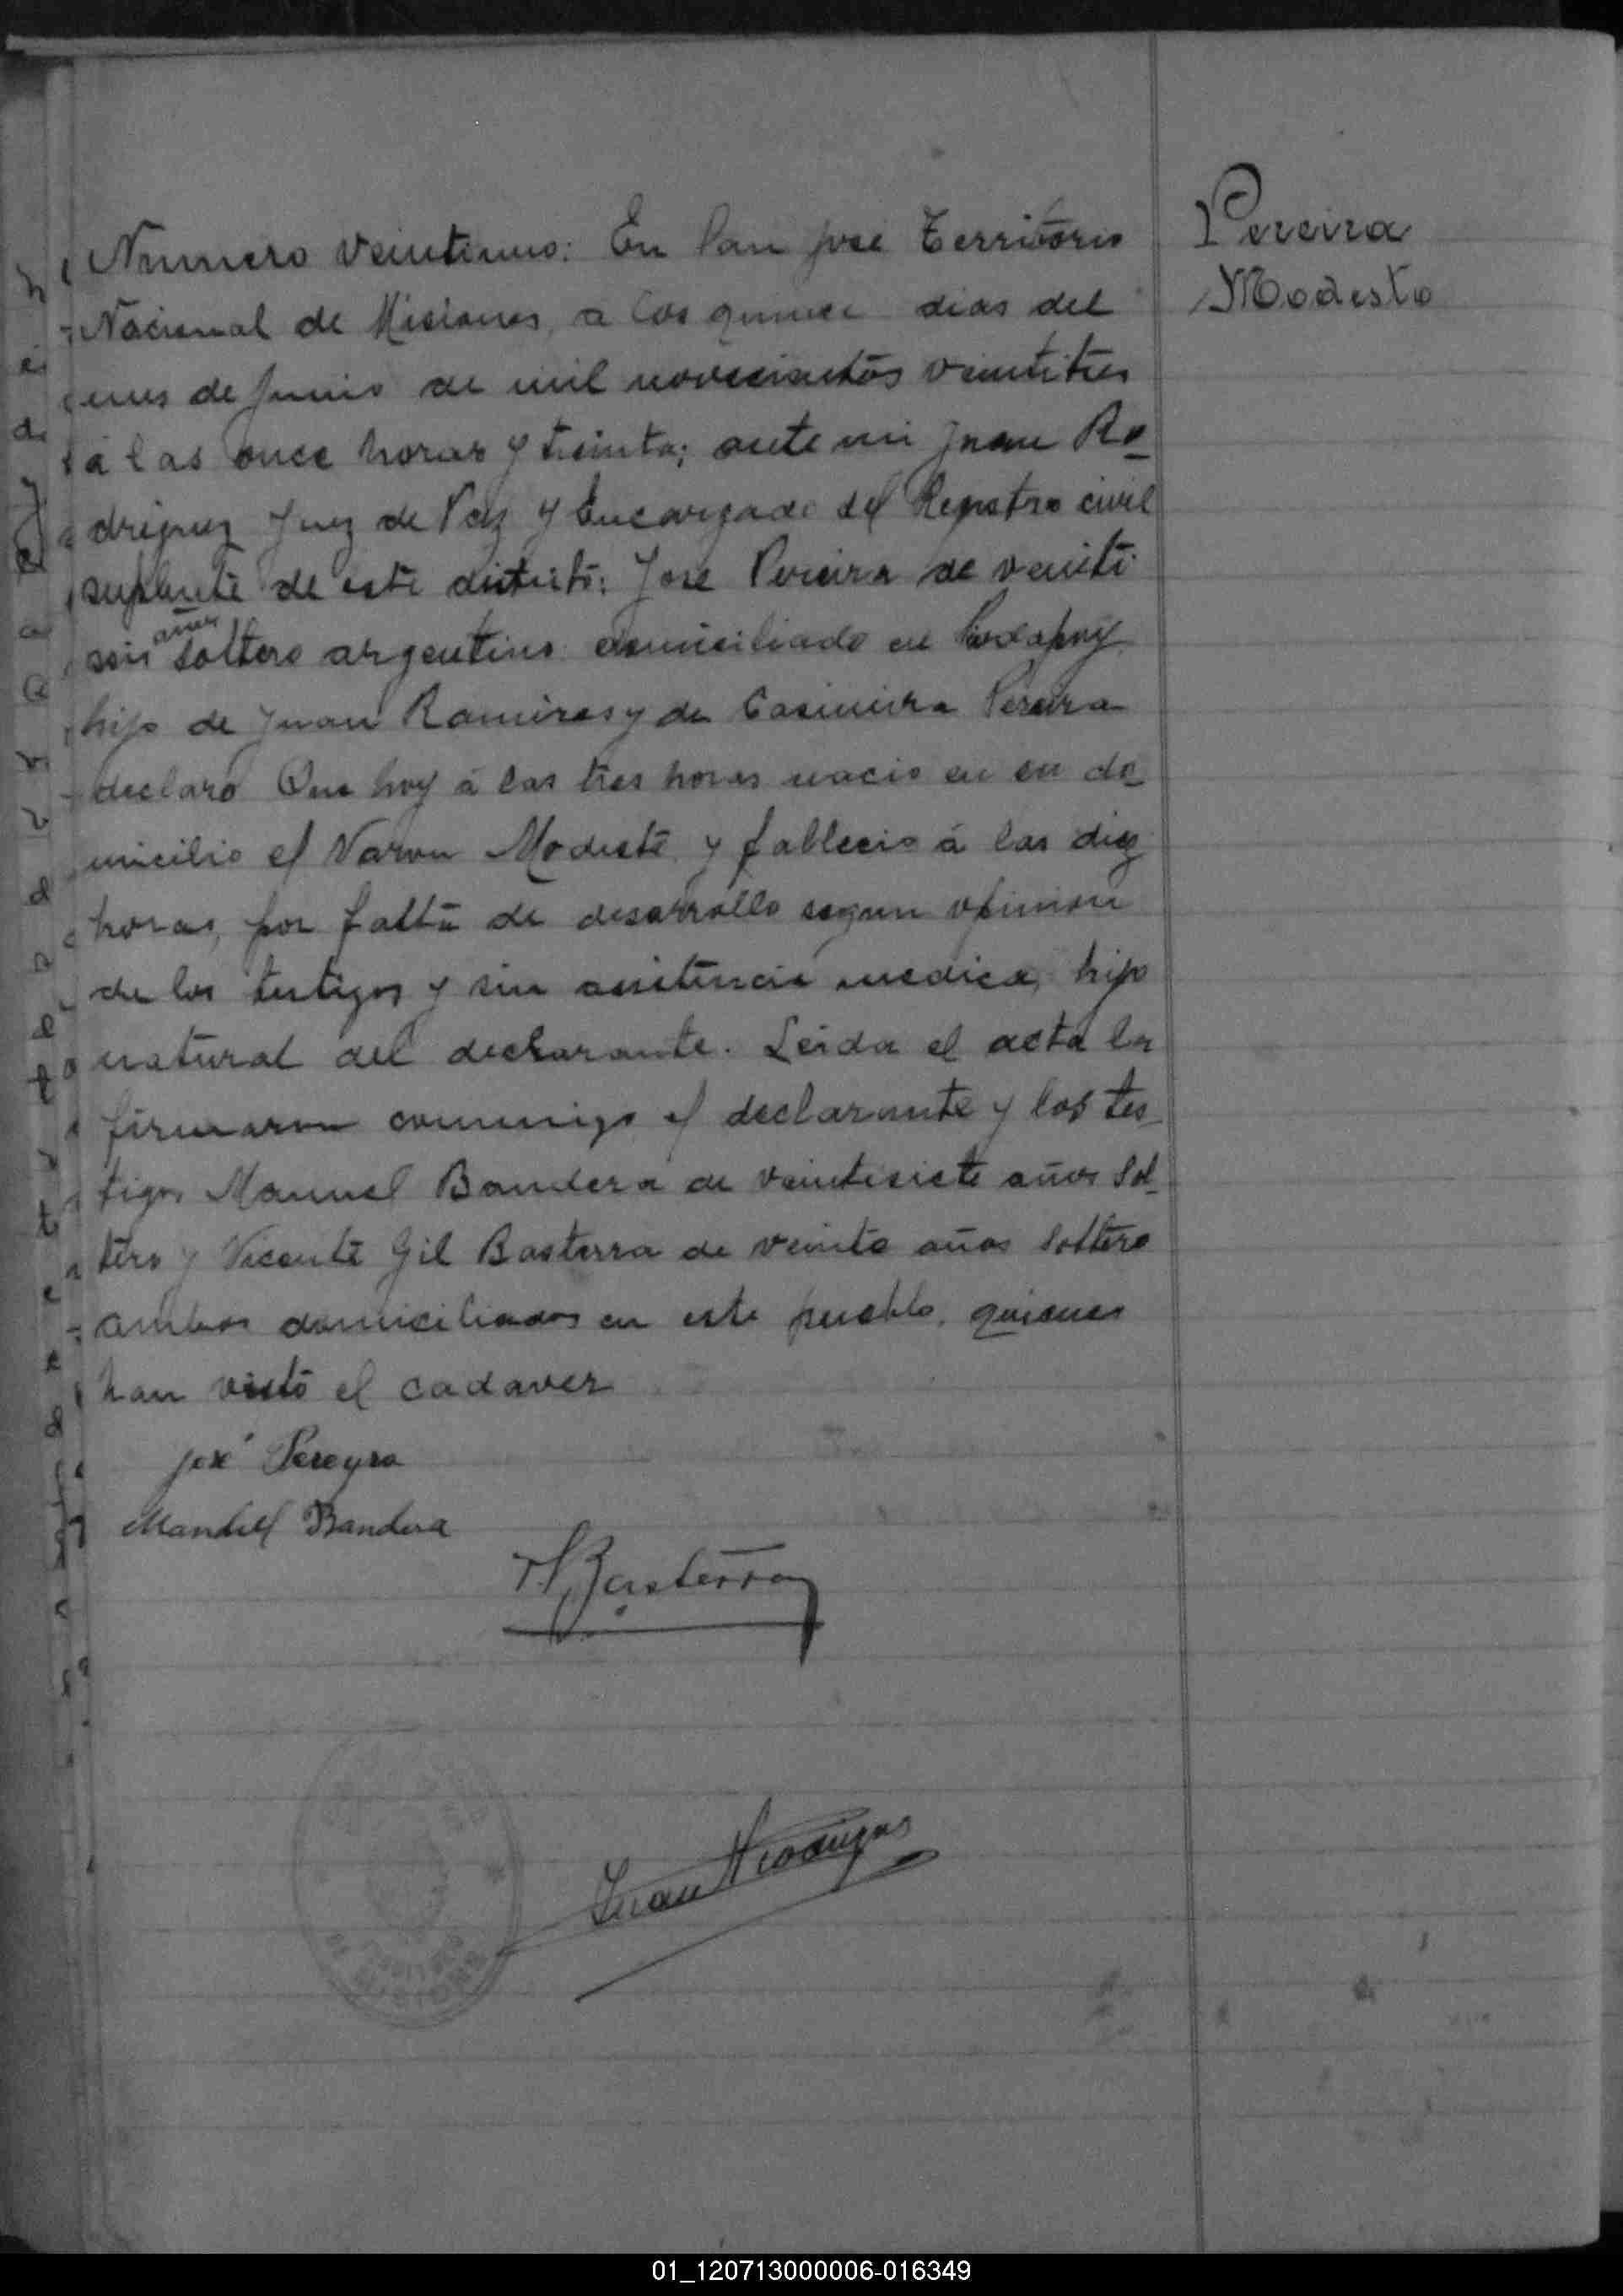 Pereira
Modesto
Numero veintiuno: En San José Territorio
Nacional de Misiones, a los quince dias del
mes de Junio de mil novecientos veintitres
á las once horas y treinta; ante mi Juan Ro_
driguez Juez de Paz y Encargado del Registro civil
suplente de este distrito: José Pereira de veinti
seis años soltero argentino domiciliado en
hijo de Juan Ramires y de Casimira Pereira
declaró Que hoy á las tres horas nacio en su do_
micilio el Varon Modesto y fallecio á las diez
horas, por falta de desarrollo segun opinion
de los testigos y sin asistencia medica, hijo
natural del declarante. Leida el acta la
firmaron conmigo el declarante y los tes_
tigos Manuel Bandera de veintisiete años Sol_
tero y Vicente Gil Basterra de veinte años Soltero
ambos domiciliados en este pueblo, quienes
han visto el cadaver
José Pereyra
Manuel Bandera
Basterra
Juan Rodriguez
MISIONES
01_120713000006-016349